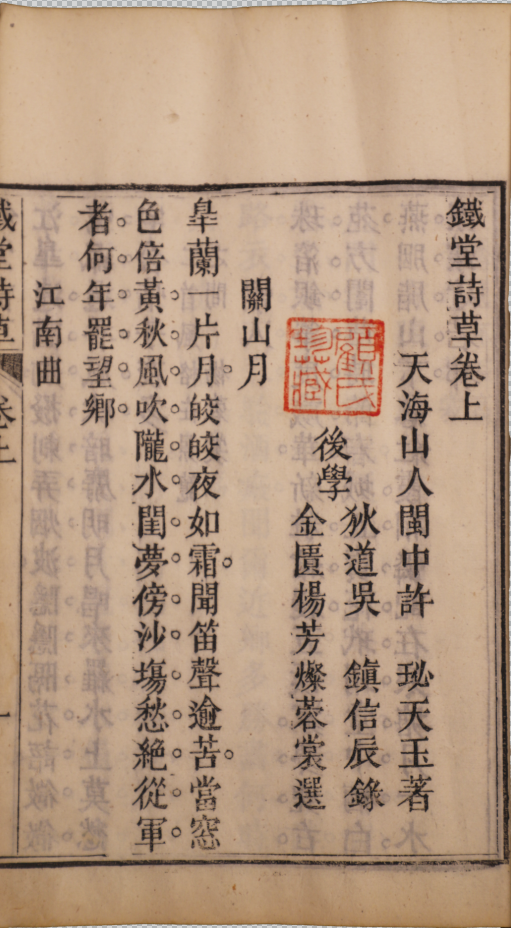 鐵堂詩草卷上
天海山人閩中許　珌天玉著
後學
狄道吳　鎮信辰錄
金匱楊芳燦蓉裳選
顧氏珍藏
關山月
臯蘭一片月皎皎夜如霜聞笛聲逾苦當窓
色倍黃秋風吹隴水閨夢傍沙塲愁絕從軍
者何年罷望鄉
江南曲
鐵堂詩草
卷上
一